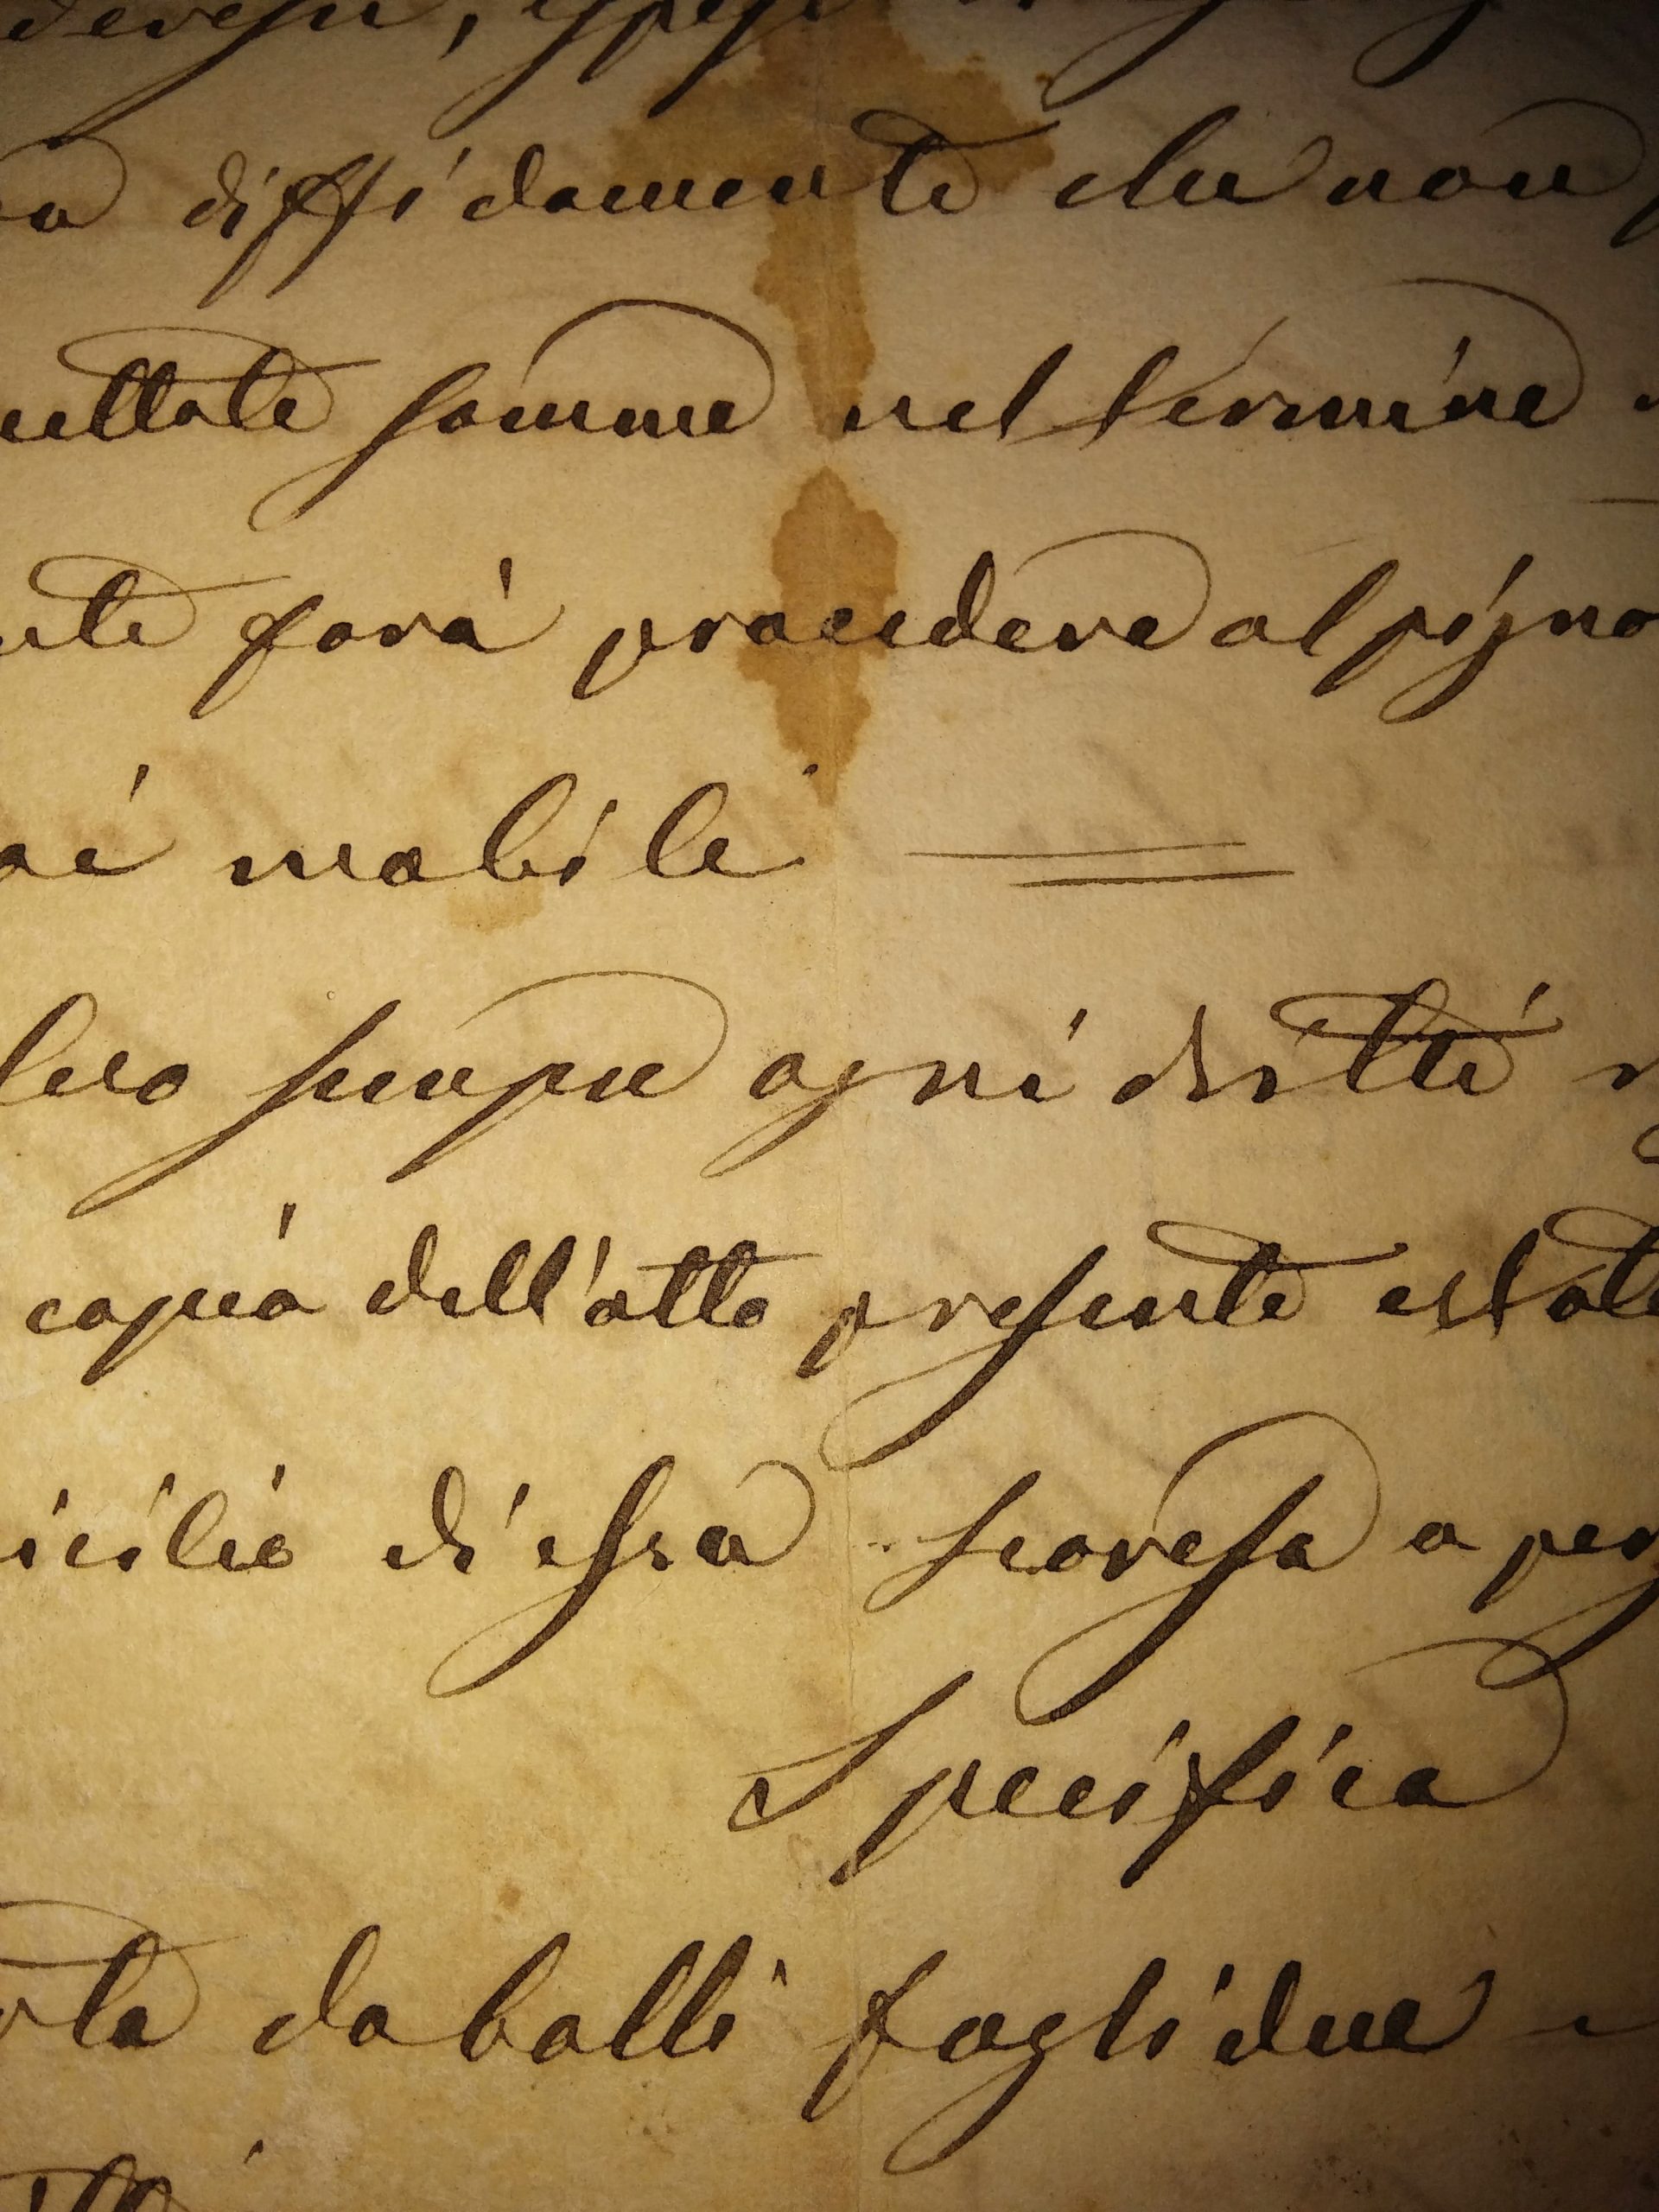 a diffidamente che non
ellate somme nel termine
nte farà procedere al pigno
oi mobile
loro sempre ogni dritti
copia dell'atto presente est ate
icilio di essa Scoresa a per
Specifica
rta da bolli fogli due